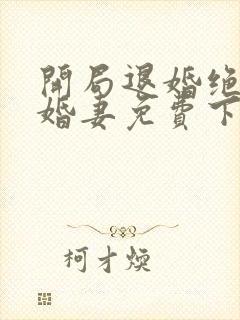 開局退婚绝
婚妻免費下
柯才煥